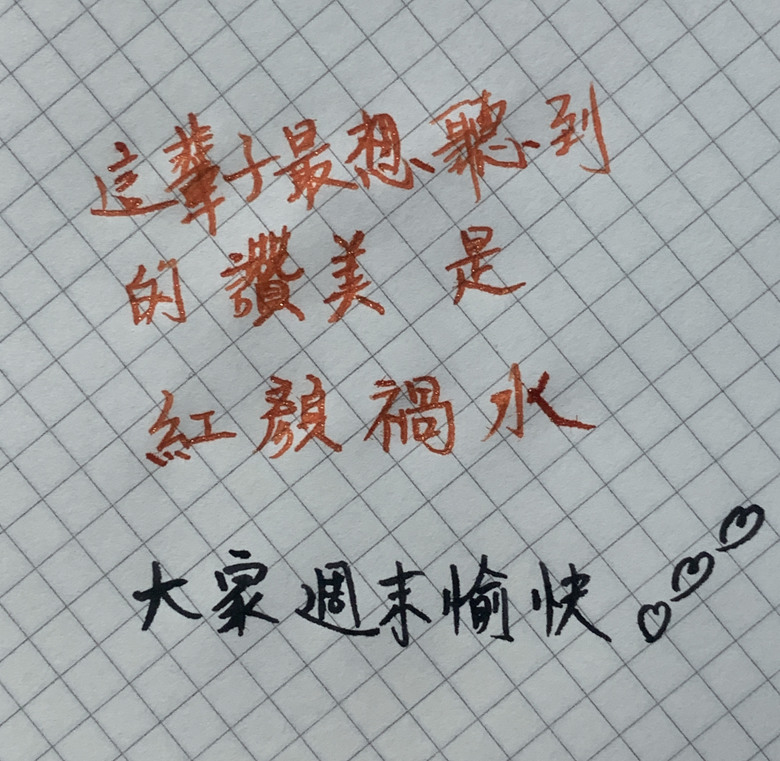 這輩子最想聽到
的讚美是
紅顏禍水
大家週末愉快